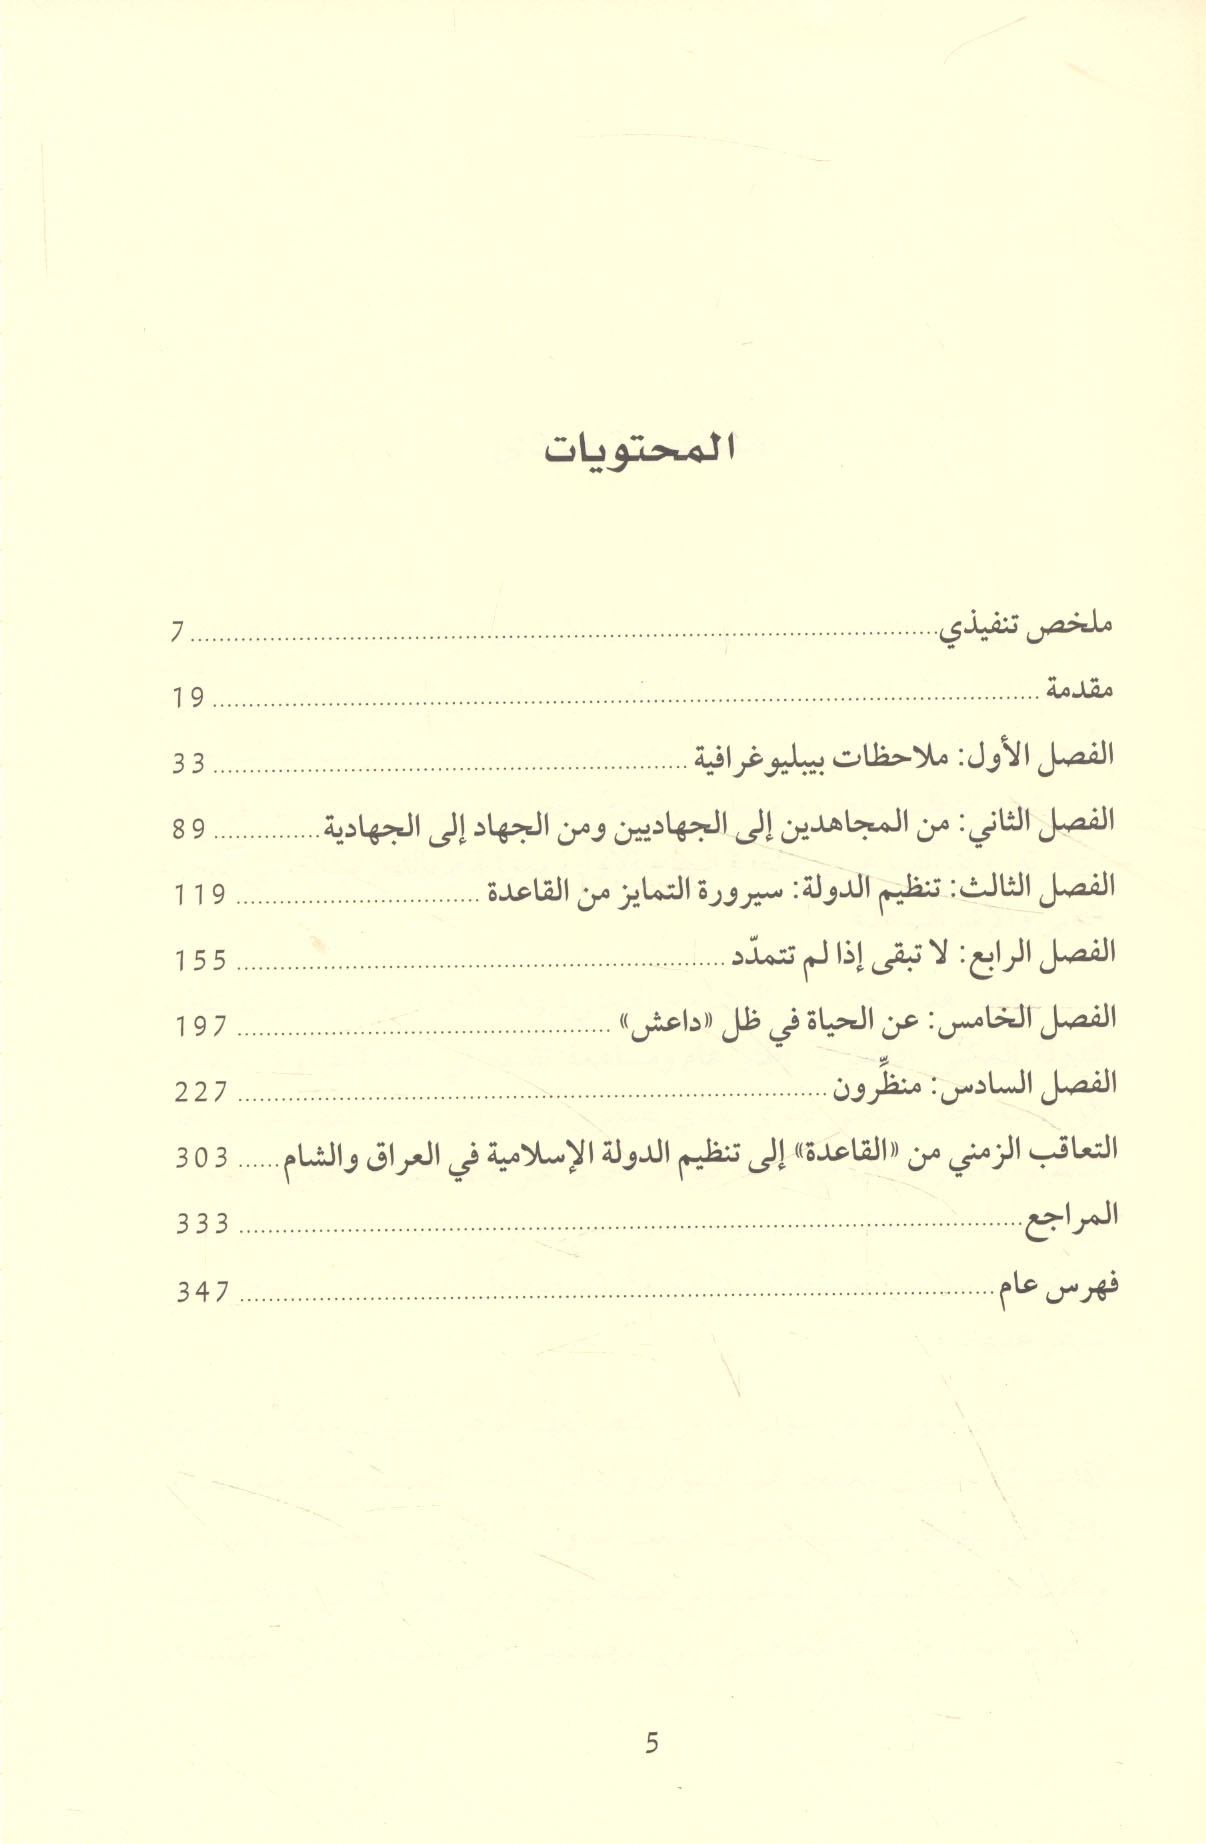 المحتويات
ملخص تنفيذي ........ 7
مقدمة ........ 19
الفصل الأول: ملاحظات بيبليوغرافية ........ 33
الفصل الثاني: من المجاهدين إلى الجهاديين ومن الجهاد إلى الجهادية ........ 89
الفصل الثالث: تنظيم الدولة: سيرورة التمايز من القاعدة ........ 119
الفصل الرابع: لا تبقى إذا لم تتمدّد ........ 155
الفصل الخامس: عن الحياة في ظل «داعش» ........ 197
الفصل السادس: منظِّرون ........ 227
التعاقب الزمني من «القاعدة» إلى تنظيم الدولة الإسلامية في العراق والشام ...... 303
المراجع ........ 333
فهرس عام ........ 347
5